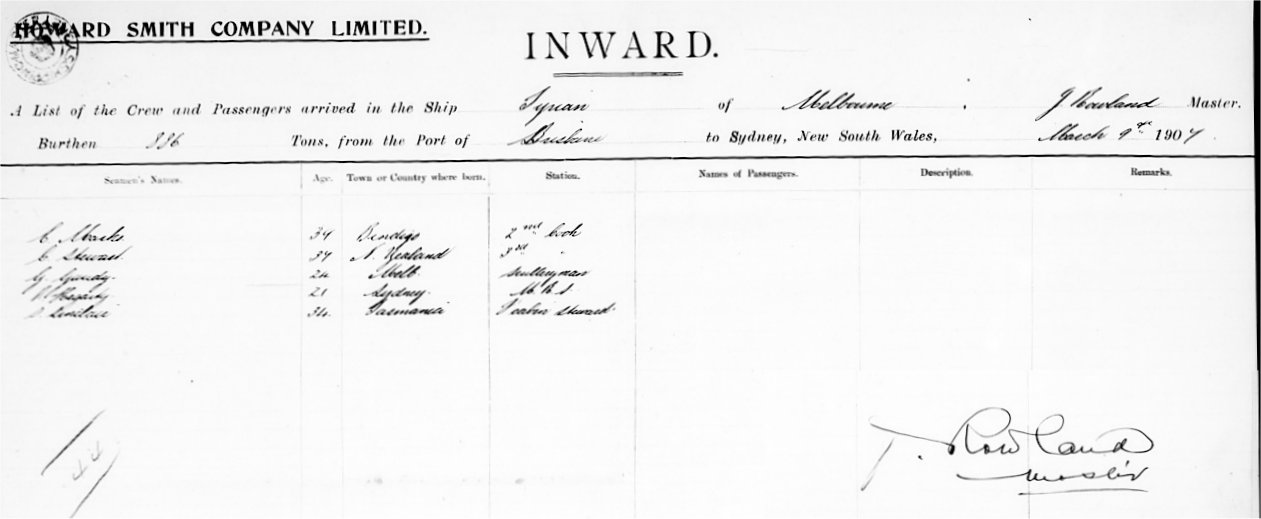 HOWARD SMITH COMPANY LIMITED.
INWARD.
A List of the Crew and Passengers arrived in the Ship Tyrian of Melbourne. J Rowland Master.
Burthen 886 Tons, from the Port of Brisbane to Sydney, New South Wales, March 9th 1907.
Seamen's Names. Age. Town or Country where born. Station. Names of Passengers. Description. Remarks.
C Marks 34 Bendigo 2nd Cook
C Stewart 37 N. Zealand 3rd "
G Gundy 24 Melb Scullery man
Hegarty 21 Sydney M. R. S.
Sinclair 34 Tasmania F cabin Steward
T. Rowland
Master